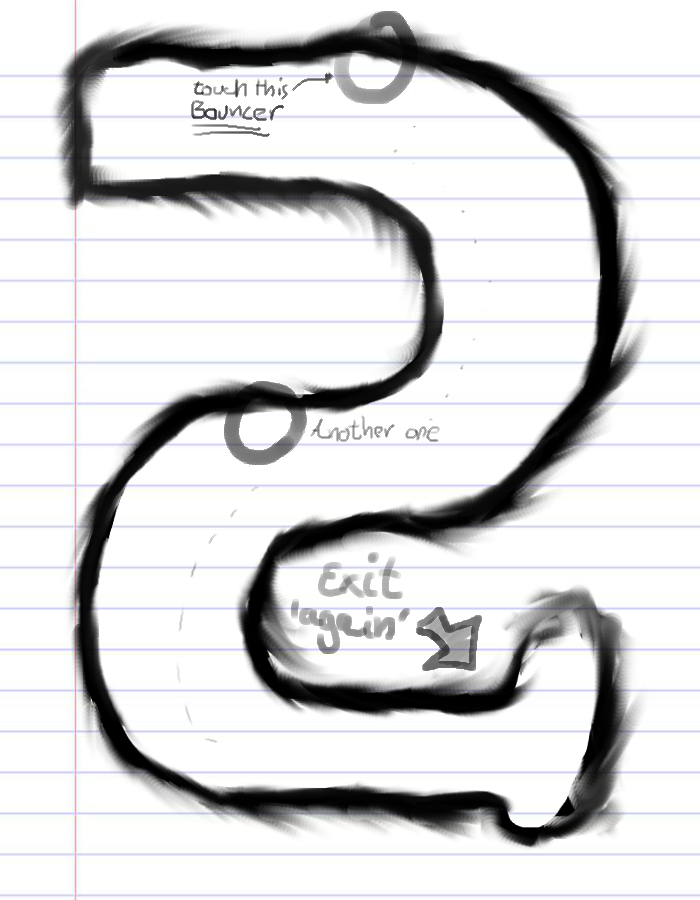 touch this
Bouncer
Another one
Exit
'again'